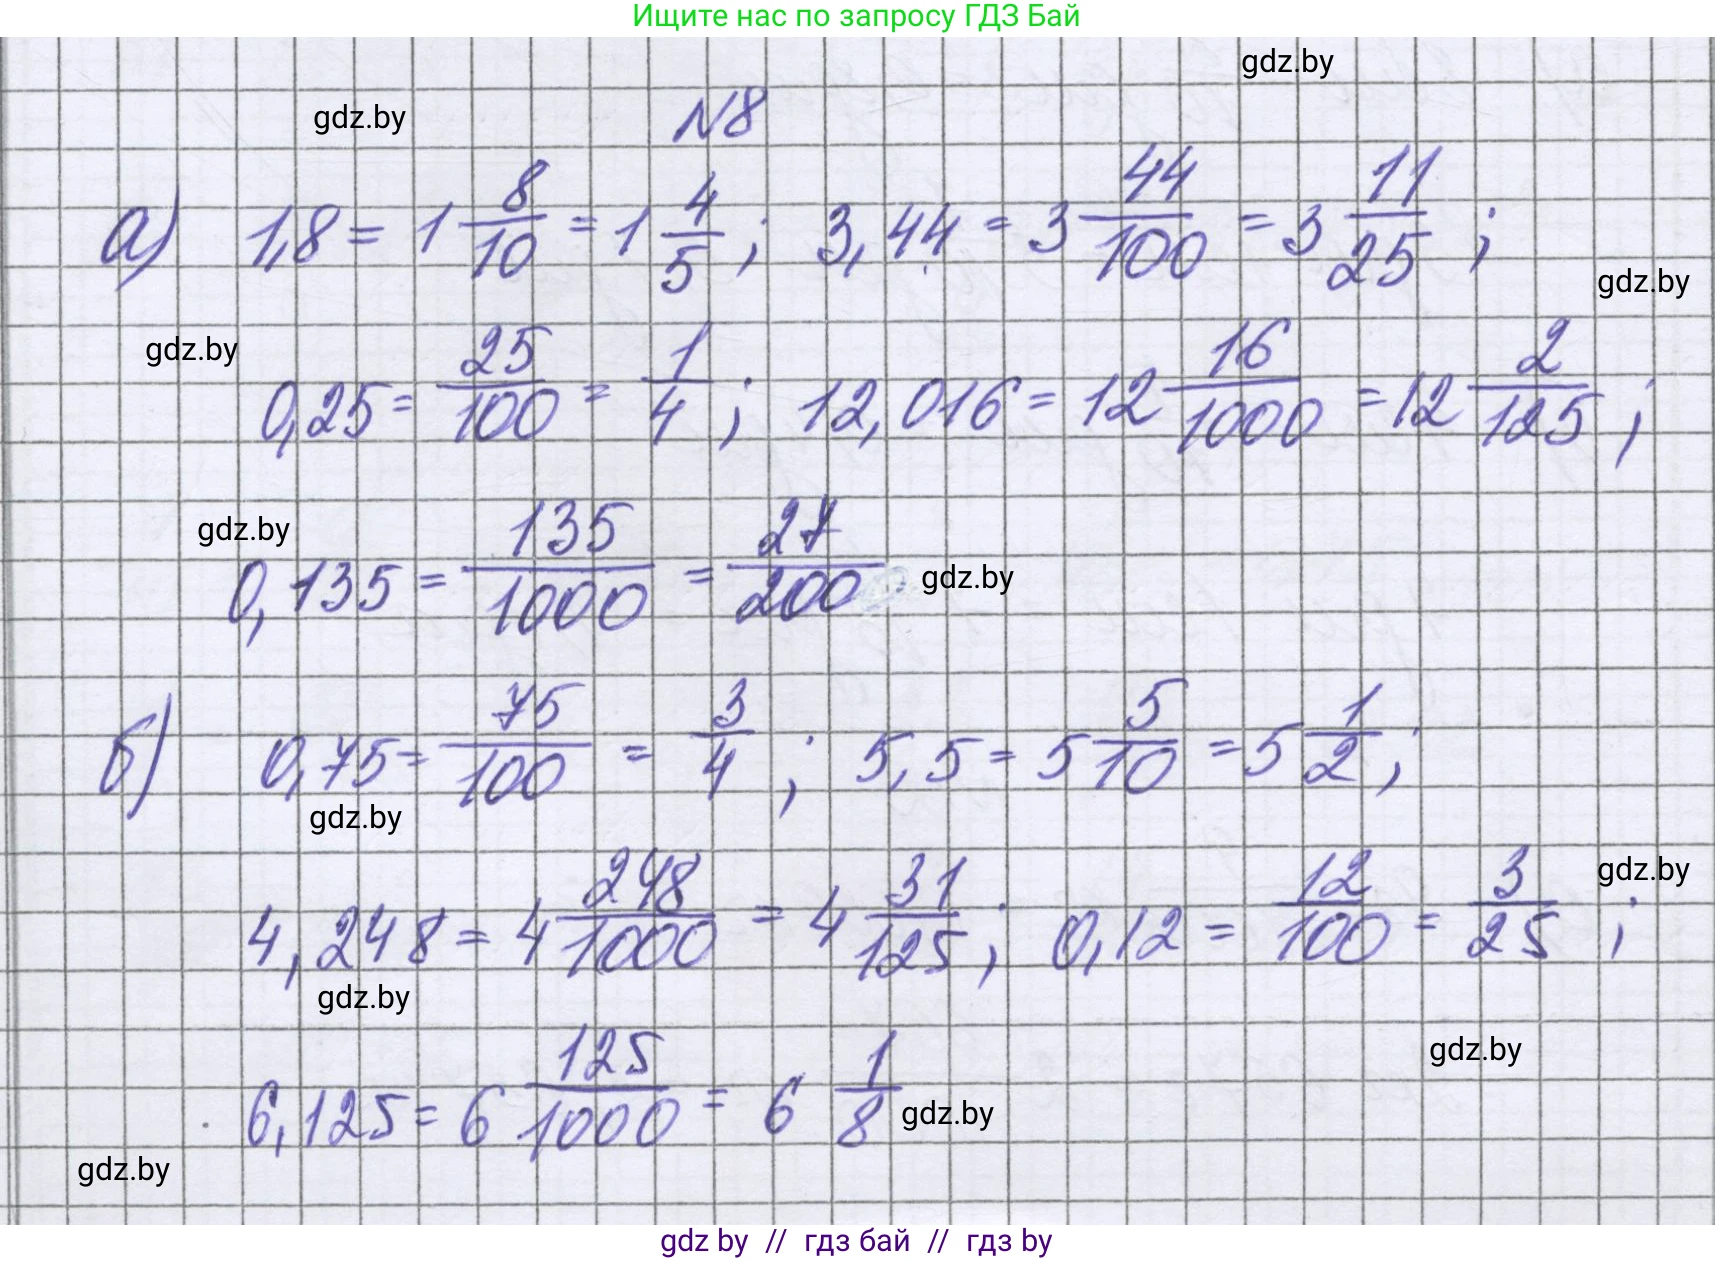 Ищите нас по запросу ГДЗ Бай
gdz.by
gdz.by
№8
а) 1,8 = 1 8/10 = 1 4/5 ; 3,44 = 3 44/100 = 3 11/25 ;
gdz.by
gdz.by
0,25 = 25/100 = 1/4 ; 12,016 = 12 16/1000 = 12 2/125 ;
gdz.by
0,135 = 135/1000 = 27/200
gdz.by
б) 0,75 = 75/100 = 3/4 ; 5,5 = 5 5/10 = 5 1/2 ;
gdz.by
gdz.by
4,248 = 4 248/1000 = 4 31/125 ; 0,12 = 12/100 = 3/25 ;
gdz.by
gdz.by
6,125 = 6 125/1000 = 6 1/8
gdz.by
gdz.by
gdz by // гдз бай // гдз by